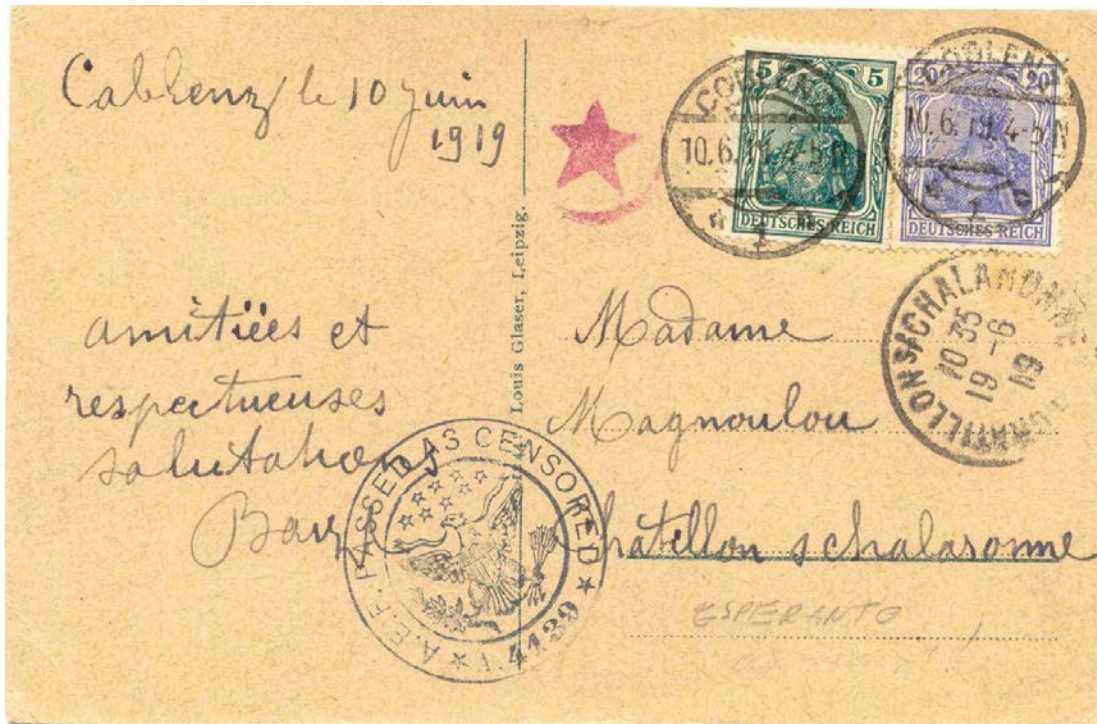 Coblenz le 10 juin
1919
amitiées et
respectueuses
salutations
Louis Glaser, Leipzig.
5 5
DEUTSCHES REICH
20 20
DEUTSCHES REICH
COBLENZ
10.6.19.4-5N
* 1
COBLENZ
10.6.19.4-5N
* 1
CHATILLON S/CHALARONNE
10 35
19 -6
19
Madame
Magnoulou
Châtillon s chalaronne
ESPERANTO
A.E.F. PASSED AS CENSORED
4139